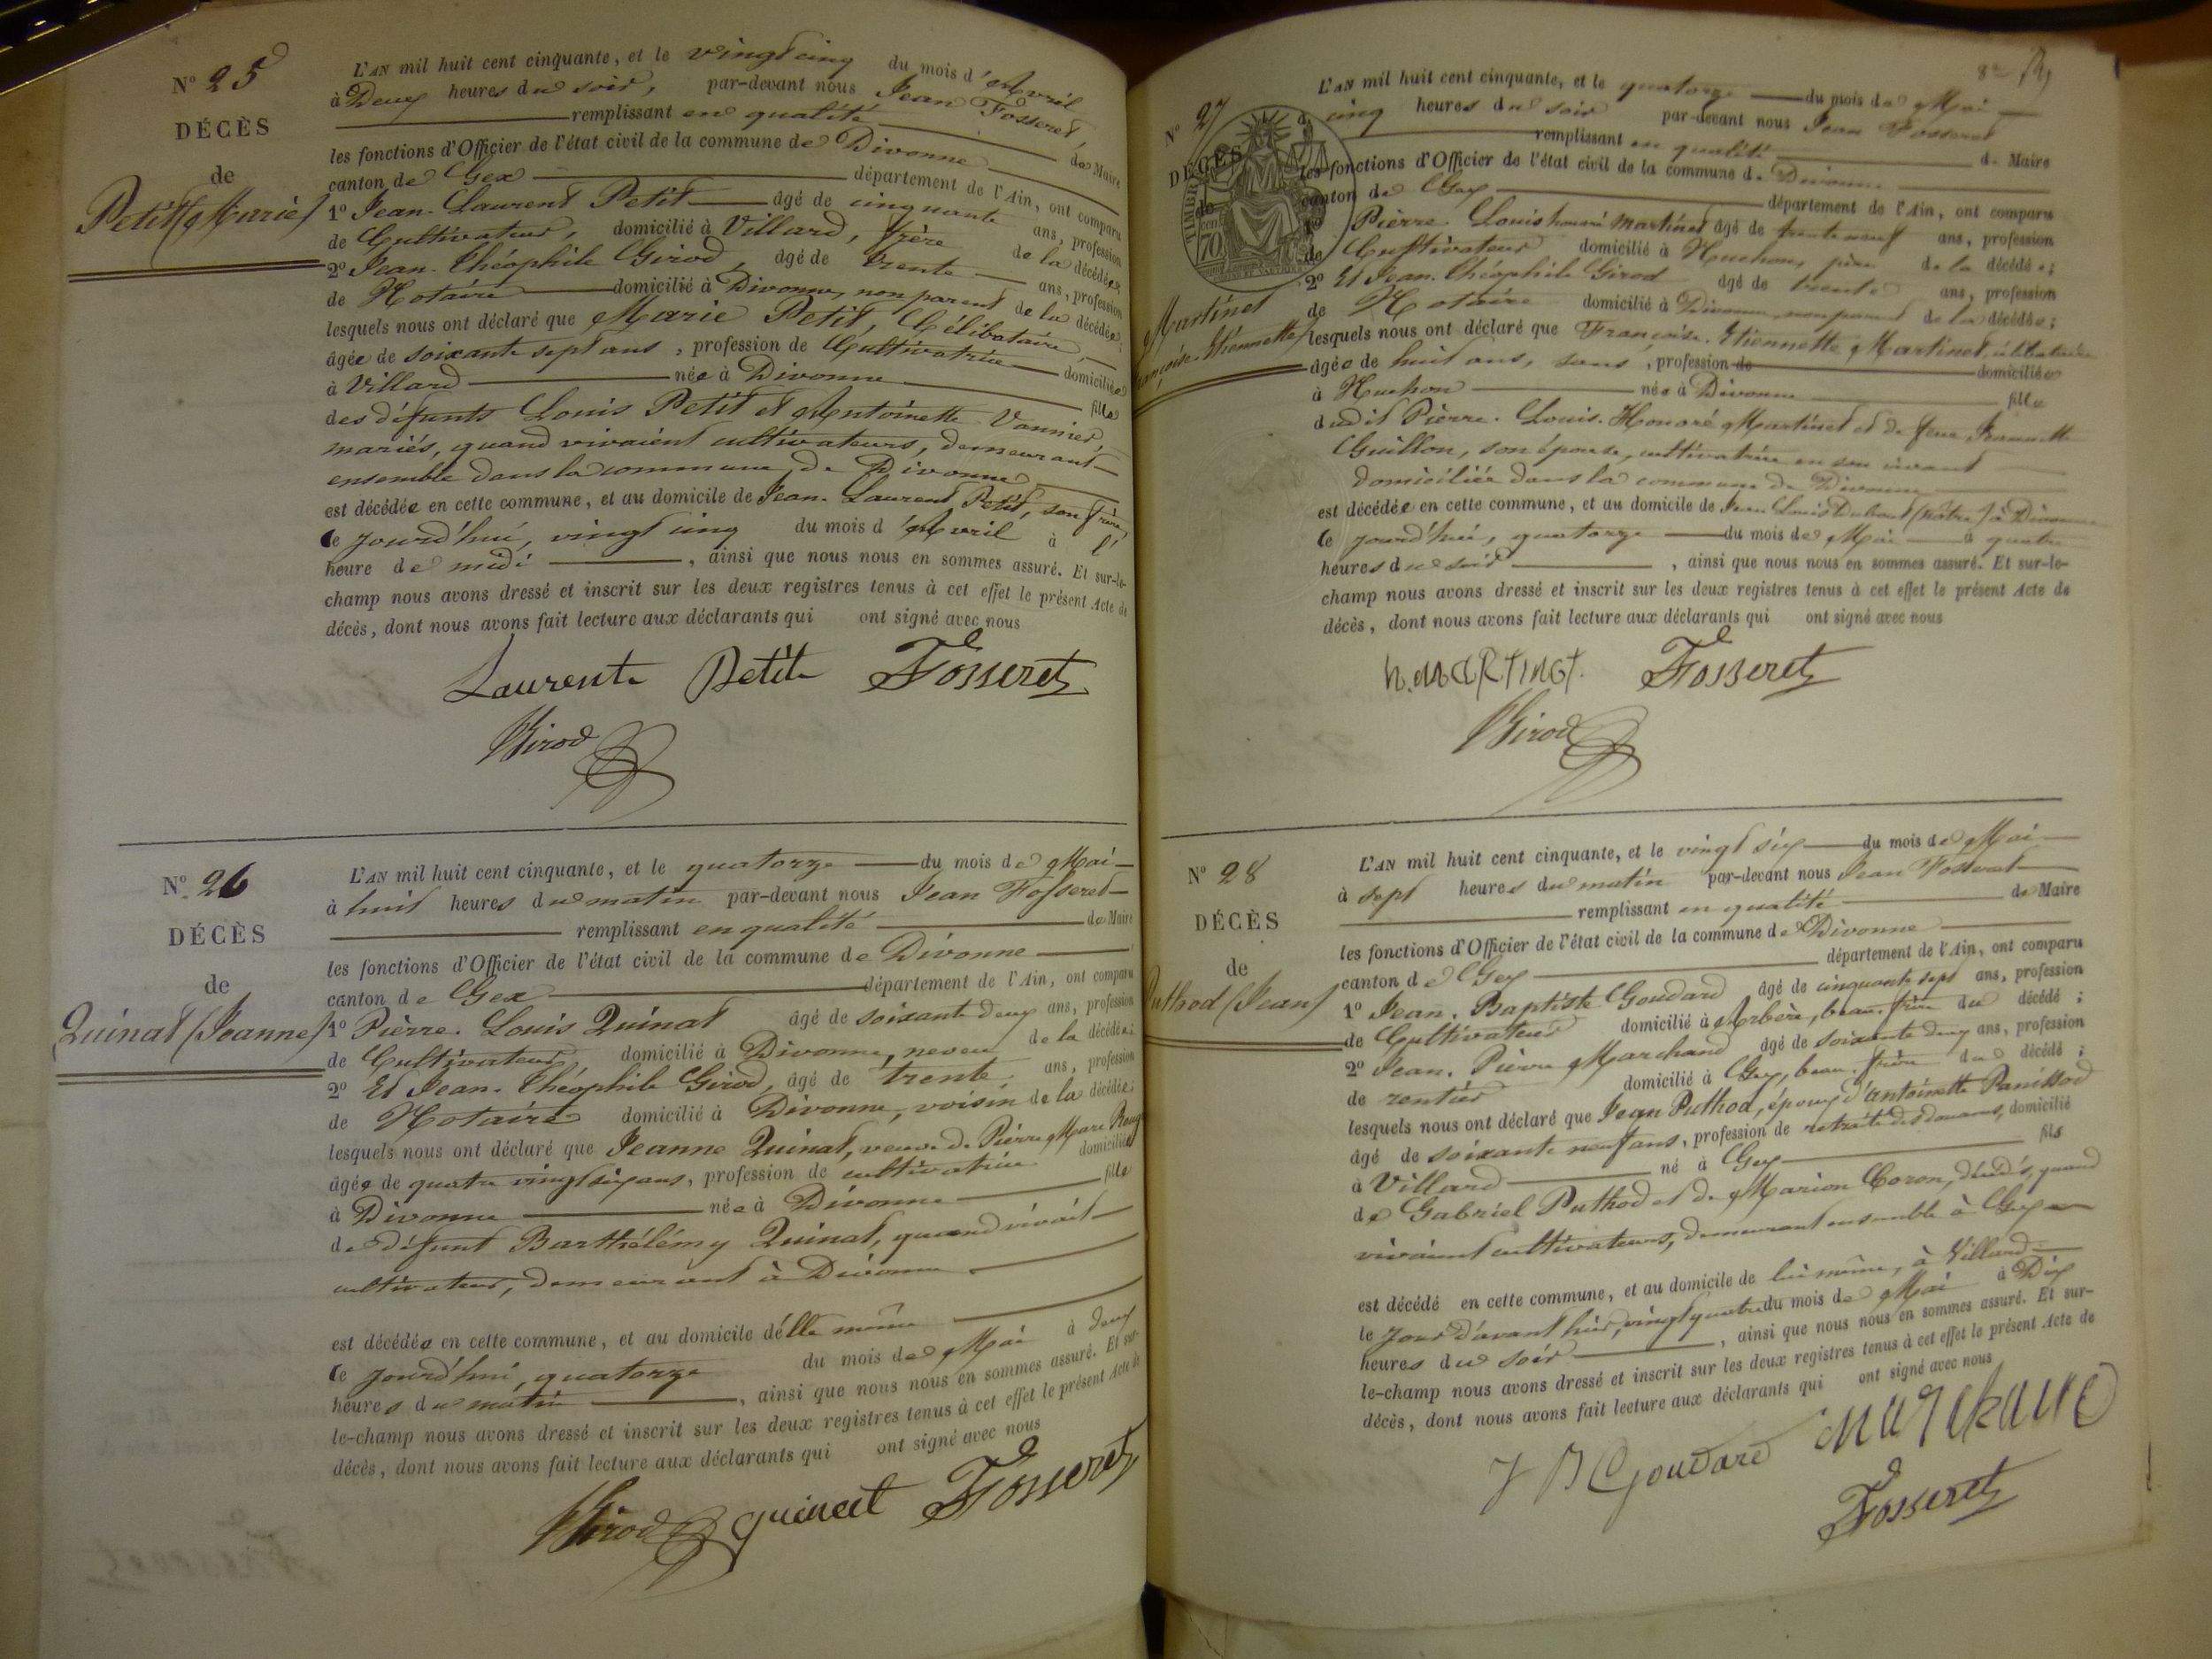 N° 25
DÉCÈS
de
Petit (Marie)
L'AN mil huit cent cinquante, et le vingt cinq du mois d'Avril
à Deux heures du soir, par-devant nous Jean Fosseret,
remplissant en qualité de Maire
les fonctions d'Officier de l'état civil de la commune de Divonne
canton de Gex département de l'Ain, ont comparu
1° Jean-Laurent Petit âgé de cinquante ans, profession
de Cultivateur, domicilié à Villard, frère de la décédée;
2° Jean-Théophile Girod, âgé de trente ans, profession
de Notaire domicilié à Divonne, non parent de la décédée;
lesquels nous ont déclaré que Marie Petit, Célibataire,
âgée de soixante sept ans, profession de Cultivatrice domiciliée
à Villard née à Divonne fille
des défunts Louis Petit et Antoinette Vannier,
mariés, quand vivaient cultivateurs, demeurant
ensemble dans la commune de Divonne
est décédée en cette commune, et au domicile de Jean-Laurent Petit, son frère,
ce jourd'hui, vingt cinq du mois d'Avril à l'
heure de midi , ainsi que nous nous en sommes assuré. Et sur-le-
champ nous avons dressé et inscrit sur les deux registres tenus à cet effet le présent Acte de
décès, dont nous avons fait lecture aux déclarants qui ont signé avec nous
Laurent Petit Fosseret
Girod
N° 26
DÉCÈS
de
Quinat (Jeanne)
L'AN mil huit cent cinquante, et le quatorze du mois de Mai
à huit heures du matin par-devant nous Jean Fosseret
remplissant en qualité de Maire
les fonctions d'Officier de l'état civil de la commune de Divonne
canton de Gex département de l'Ain, ont comparu
1° Pierre-Louis Quinat âgé de soixante deux ans, profession
de Cultivateur, domicilié à Divonne, neveu de la décédée;
2° Et Jean-Théophile Girod, âgé de trente ans, profession
de Notaire domicilié à Divonne, voisin de la décédée;
lesquels nous ont déclaré que Jeanne Quinat, veuve de Pierre Marc
âgée de quatre vingt six ans, profession de cultivatrice domiciliée
à Divonne née à Divonne fille
de défunt Barthélémy Quinat, quand vivait
cultivateur, demeurant à Divonne
est décédée en cette commune, et au domicile d'elle même
ce jourd'hui, quatorze du mois de Mai à deux
heures du matin , ainsi que nous nous en sommes assuré. Et sur-
le-champ nous avons dressé et inscrit sur les deux registres tenus à cet effet le présent Acte de
décès, dont nous avons fait lecture aux déclarants qui ont signé avec nous
Girod quinat Fosseret
N° 27
DÉCÈS
de
Martinet
Françoise-Etiennette
TIMBRE
70
L'AN mil huit cent cinquante, et le quatorze du mois de Mai
à cinq heures du soir par-devant nous Jean Fosseret
remplissant en qualité de Maire
les fonctions d'Officier de l'état civil de la commune de Divonne
canton de Gex département de l'Ain, ont comparu
1° Pierre-Louis honoré Martinet âgé de trente neuf ans, profession
de Cultivateur domicilié à Huchon, père de la décédée;
2° Et Jean-Théophile Girod âgé de trente ans, profession
de Notaire domicilié à Divonne, non parent de la décédée;
lesquels nous ont déclaré que Françoise-Etiennette Martinet, célibataire
âgée de huit ans, sans, profession de domiciliée
à Huchon née à Divonne fille
dudit Pierre-Louis-Honoré Martinet et de feue Jeannette
Guillon, son épouse, cultivatrice en son vivant
domiciliée dans la commune de Divonne
est décédée en cette commune, et au domicile de Jean Louis à Divonne
ce jourd'hui, quatorze du mois de Mai à quatre
heures du soir , ainsi que nous nous en sommes assuré. Et sur-le-
champ nous avons dressé et inscrit sur les deux registres tenus à cet effet le présent Acte de
décès, dont nous avons fait lecture aux déclarants qui ont signé avec nous
h. MARTINET. Fosseret
Girod
N° 28
DÉCÈS
de
Puthod (Jean)
L'AN mil huit cent cinquante, et le vingt six du mois de Mai
à sept heures du matin par-devant nous Jean Fosseret
remplissant en qualité de Maire
les fonctions d'Officier de l'état civil de la commune de Divonne
canton de Gex département de l'Ain, ont comparu
1° Jean-Baptiste Goudard âgé de cinquante sept ans, profession
de Cultivateur domicilié à Arbère, beau-frère du décédé;
2° Jean-Pierre Marchand âgé de soixante deux ans, profession
de rentier domicilié à Gex, beau-frère du décédé;
lesquels nous ont déclaré que Jean Puthod, époux d'Antoinette Panissod
âgé de soixante neuf ans, profession de retraité des douanes, domicilié
à Villard né à Gex fils
de Gabriel Puthod et de Marion Coron, décédés, quand
vivaient cultivateurs, demeurant ensemble à Gex
est décédé en cette commune, et au domicile de lui même, à Villard
le jour d'avant hier, vingt quatre du mois de Mai à Dix
heures du soir , ainsi que nous nous en sommes assuré. Et sur-
le-champ nous avons dressé et inscrit sur les deux registres tenus à cet effet le présent Acte de
décès, dont nous avons fait lecture aux déclarants qui ont signé avec nous
J B Goudard
Fosseret